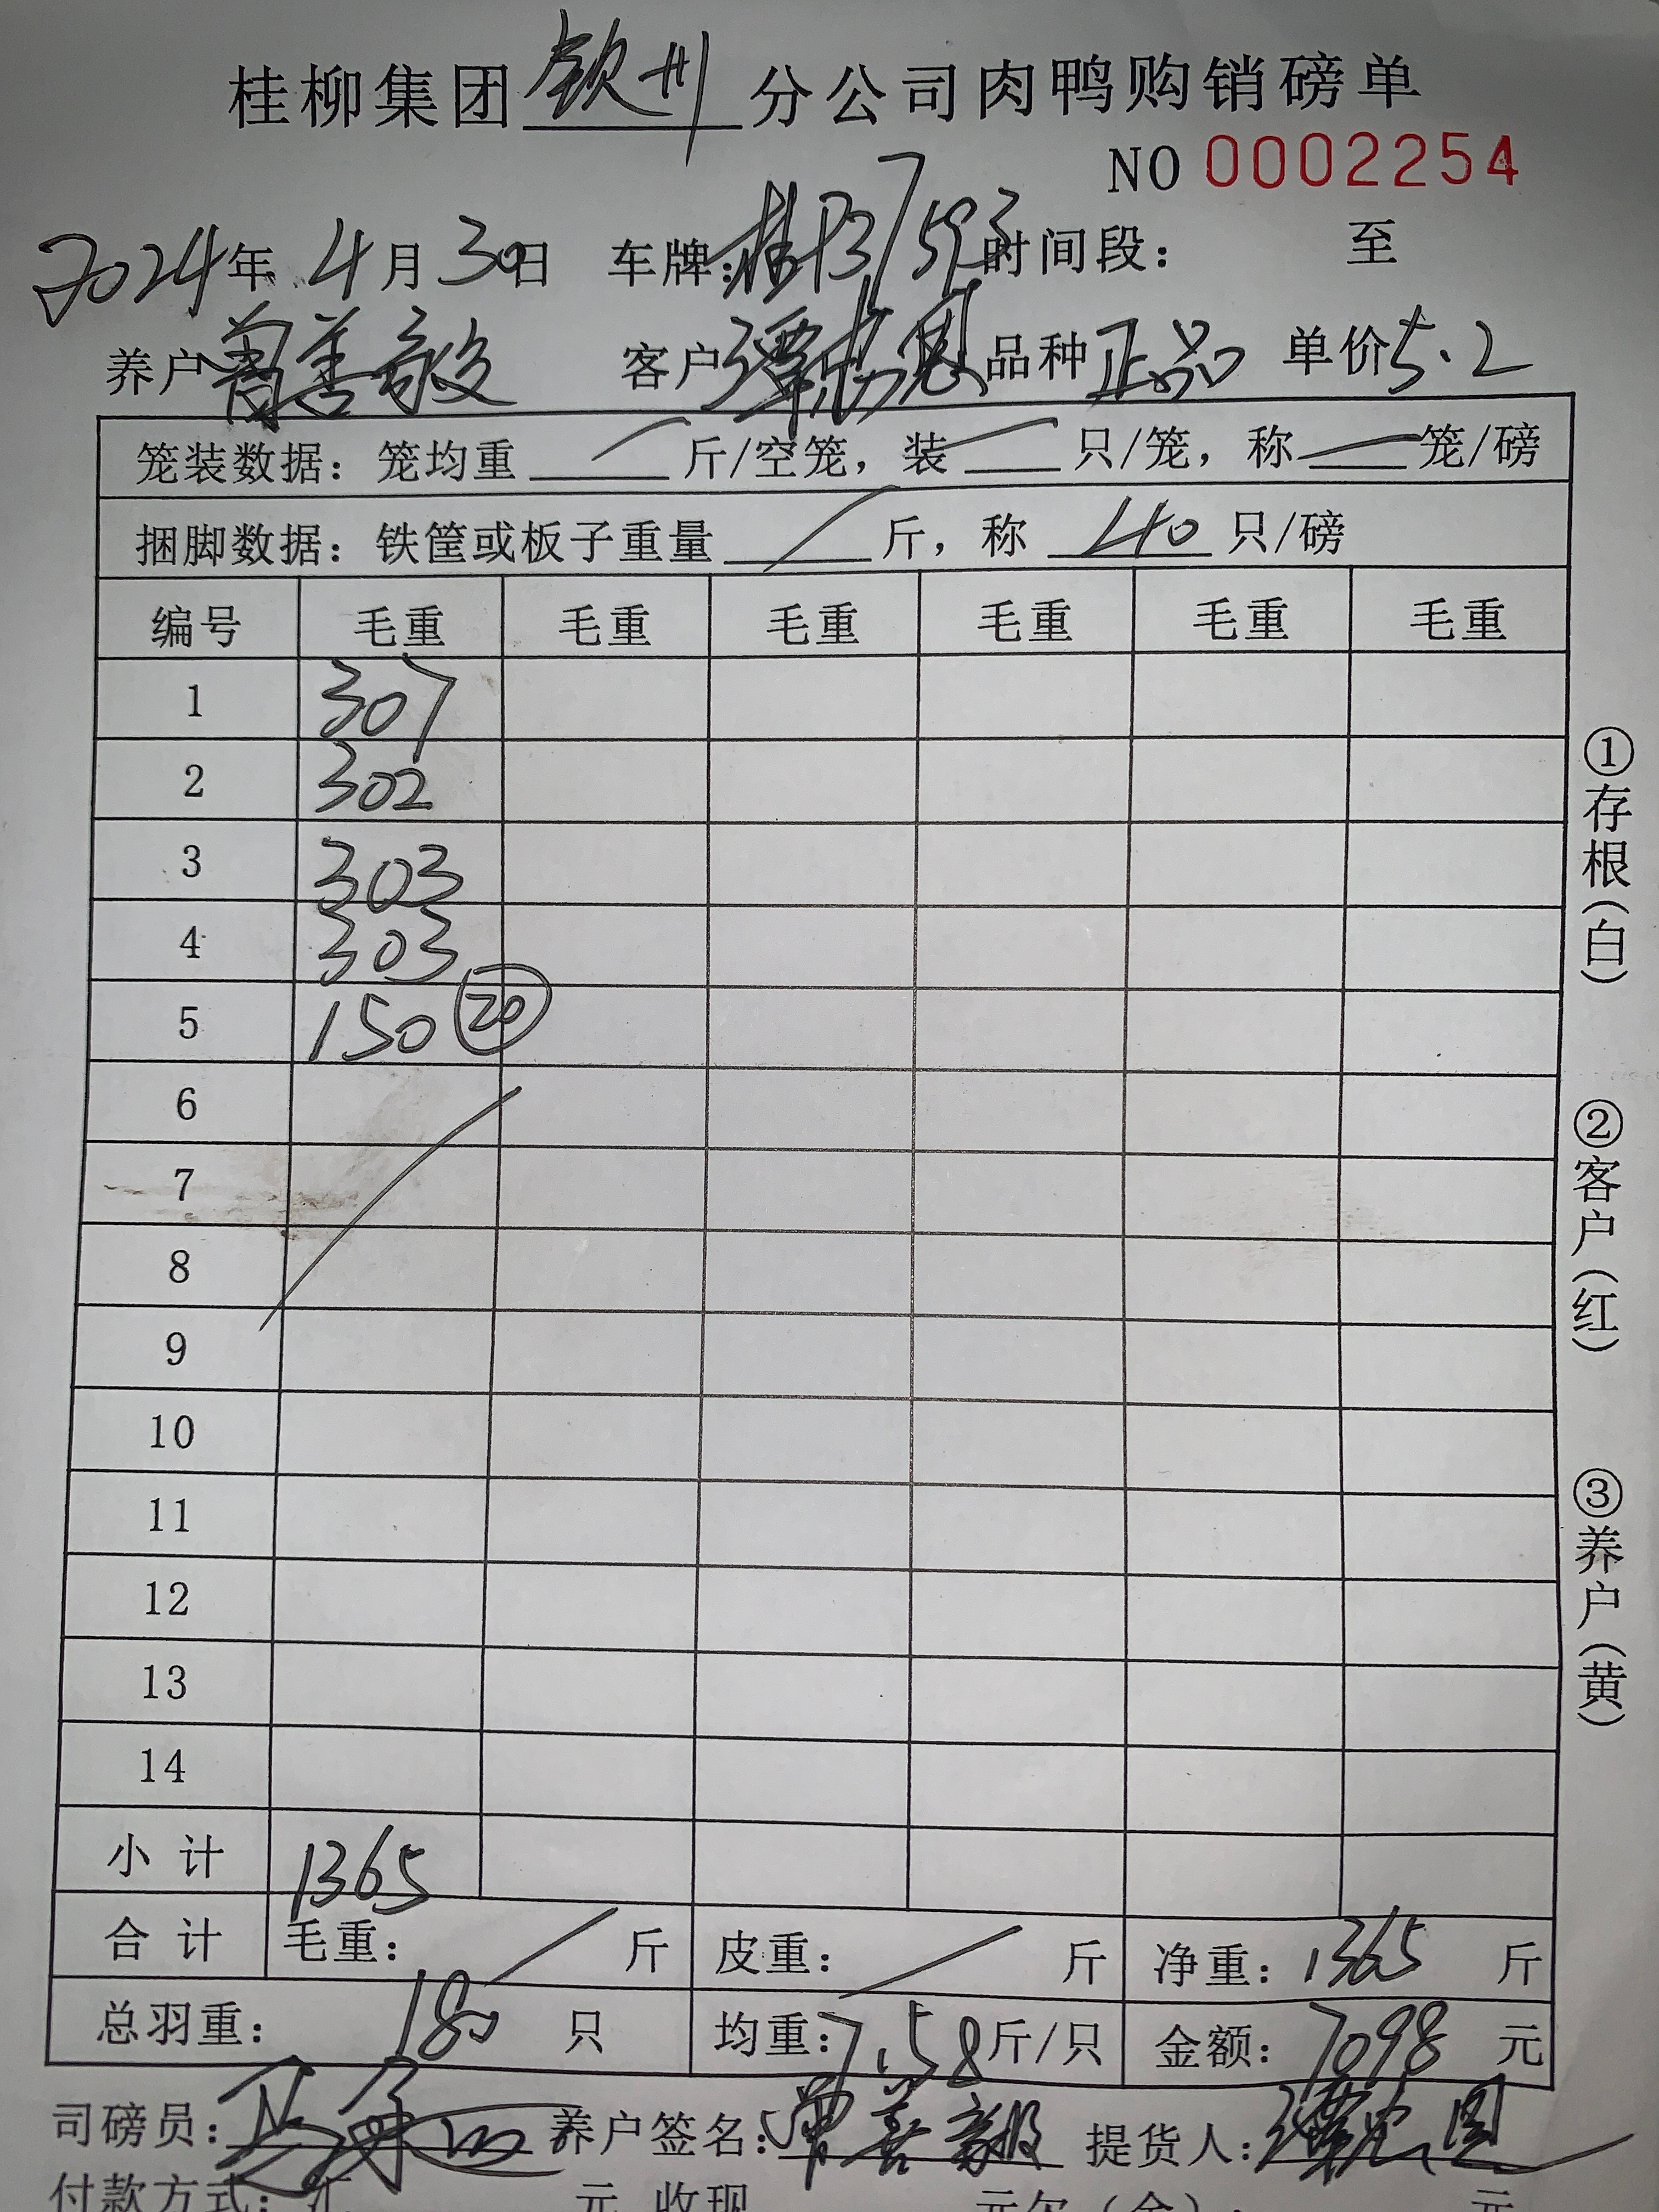 桂柳集团钦州分公司肉鸭购销磅单
NO 0002254
2024年4月30日 车牌:桂P37593 时间段: 至
养户曾善毅 客户谭 品种正品 单价5.2
笼装数据: 笼均重 斤/空笼, 装 只/笼, 称 笼/磅
捆脚数据: 铁筐或板子重量 斤, 称 40 只/磅
编号 毛重 毛重 毛重 毛重 毛重 毛重
1 307
2 302
3 303
4 303
5 150 ⑳
6
7
8
9
10
11
12
13
14
小计 1365
合计 毛重: 斤 皮重: 斤 净重: 1365 斤
总羽重: 180 只 均重: 7.58斤/只 金额: 7098 元
司磅员: 养户签名: 曾善毅 提货人: 谭
付款方式: 汇 元 收现 元欠(余): 元
①存根(白)
②客户(红)
③养户(黄)